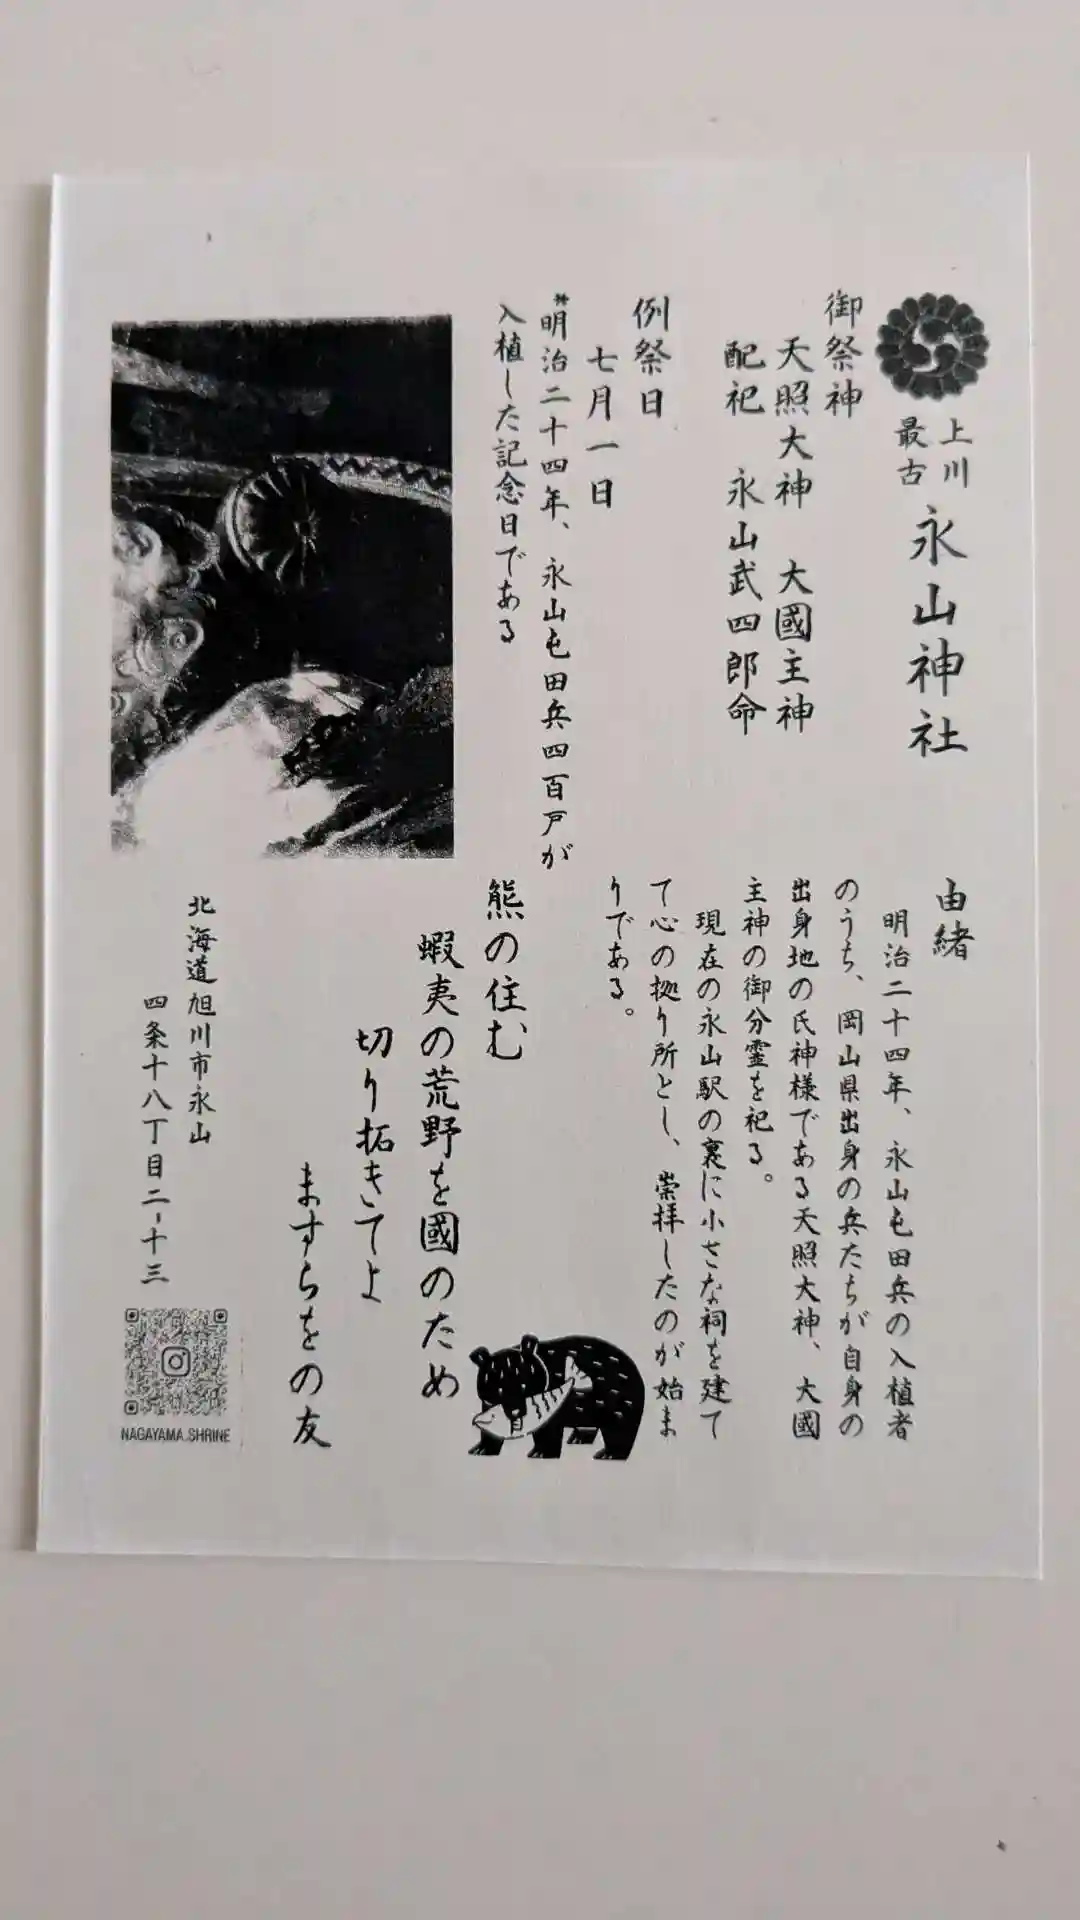 上川
最古
永山神社
御祭神
天照大神 大國主神
配祀 永山武四郎命
例祭日
七月一日
※明治二十四年、永山屯田兵四百戸が
入植した記念日である
由緒
明治二十四年、永山屯田兵の入植者
のうち、岡山県出身の兵たちが自身の
出身地の氏神様である天照大神、大國
主神の御分霊を祀る。
現在の永山駅の裏に小さな祠を建て
て心の拠り所とし、崇拝したのが始ま
りである。
熊の住む
蝦夷の荒野を國のため
切り拓きてよ
ますらをの友
北海道旭川市永山
四条十八丁目二-十三
NAGAYAMA.SHRINE